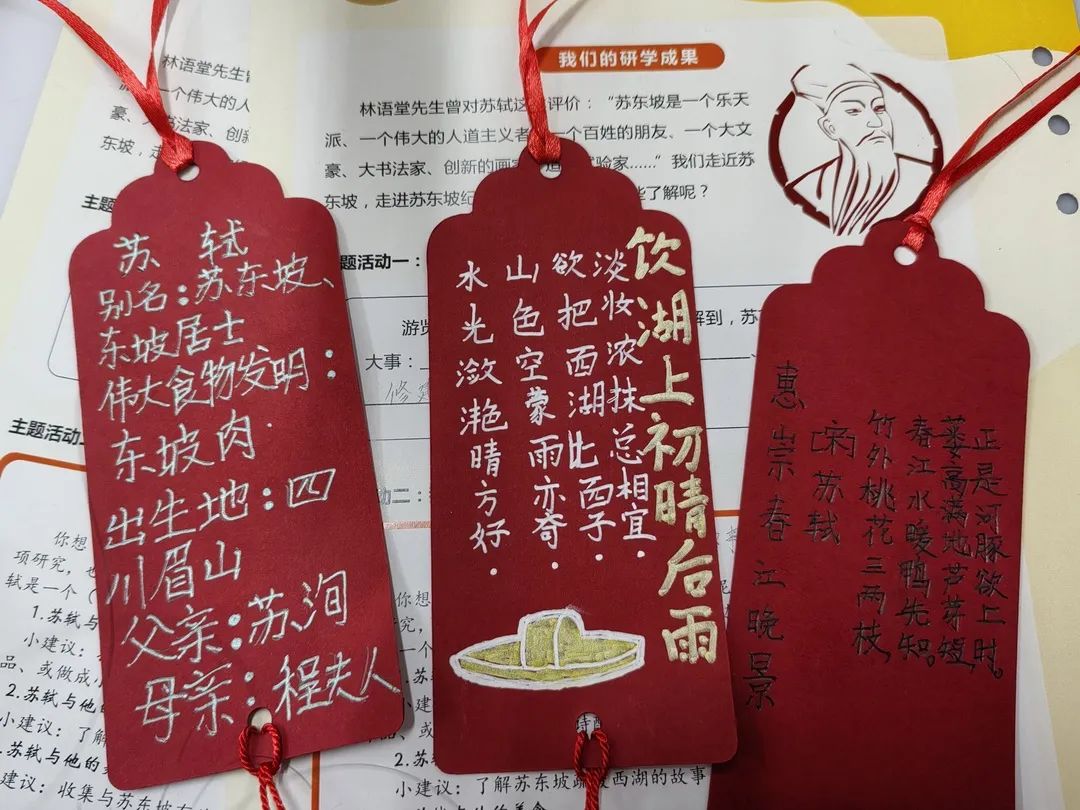 我们的研学成果
林语堂先生曾对苏轼这 评价：“苏东坡是一个乐天
派、一个伟大的人道主义者 一个百姓的朋友、一个大文
豪、大书法家、创新的画 验家……”我们走近苏
东坡，走进苏东坡纪 些了解呢？
林语堂先生曾
一个伟大的人
豪、大书法家、创新
东坡，走
主题
题活动一：
游览
解到，苏
大事：
修建
主题活动
动二：
苏 轼
别名：苏东坡、
东坡居士
伟大食物发明：
东坡肉.
出生地：四
川眉山
父亲：苏洵
母亲：程夫人
饮湖上初晴后雨
水光潋滟晴方好.
山色空蒙雨亦奇.
欲把西湖比西子.
淡妆浓抹总相宜.
惠崇春江晚景
[宋]苏轼
竹外桃花三两枝，
春江水暖鸭先知。
蒌蒿满地芦芽短，
正是河豚欲上时。
你想
项研究，也
轼是一个（
1.苏轼与
小建议：
品、或做成小
2.苏轼与他的
小建议：了解
.苏轼与他的
建议：收集与苏东坡
你想
2.苏
小建议：了解苏东坡疏 西湖的故事